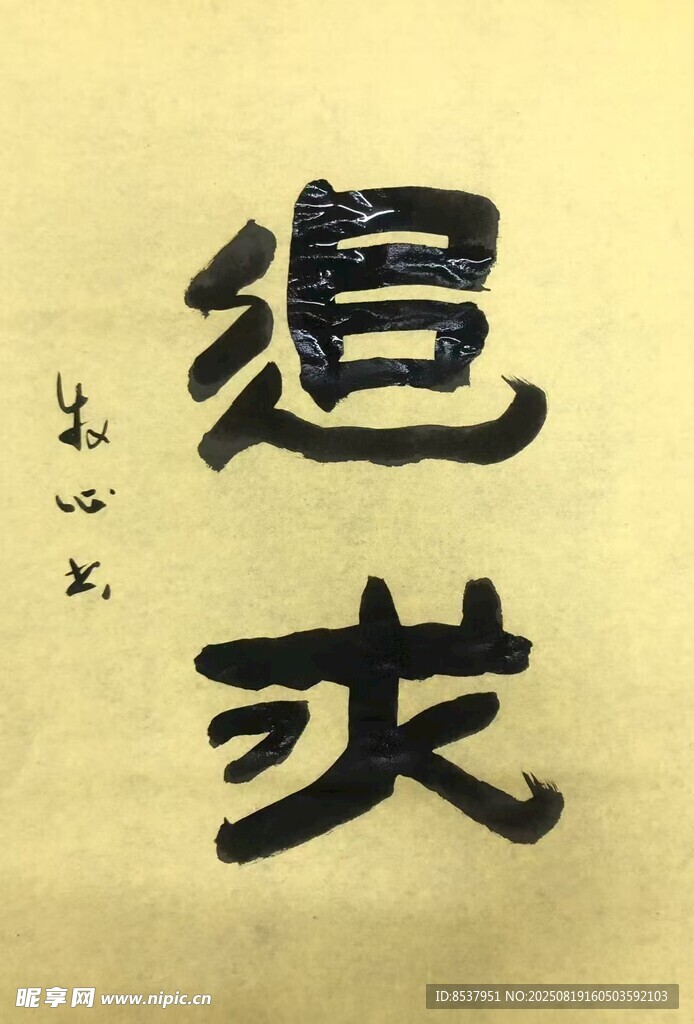 追求
牧心书
昵享网 www.nipic.cn
ID:8537951 NO:20250819160503592103